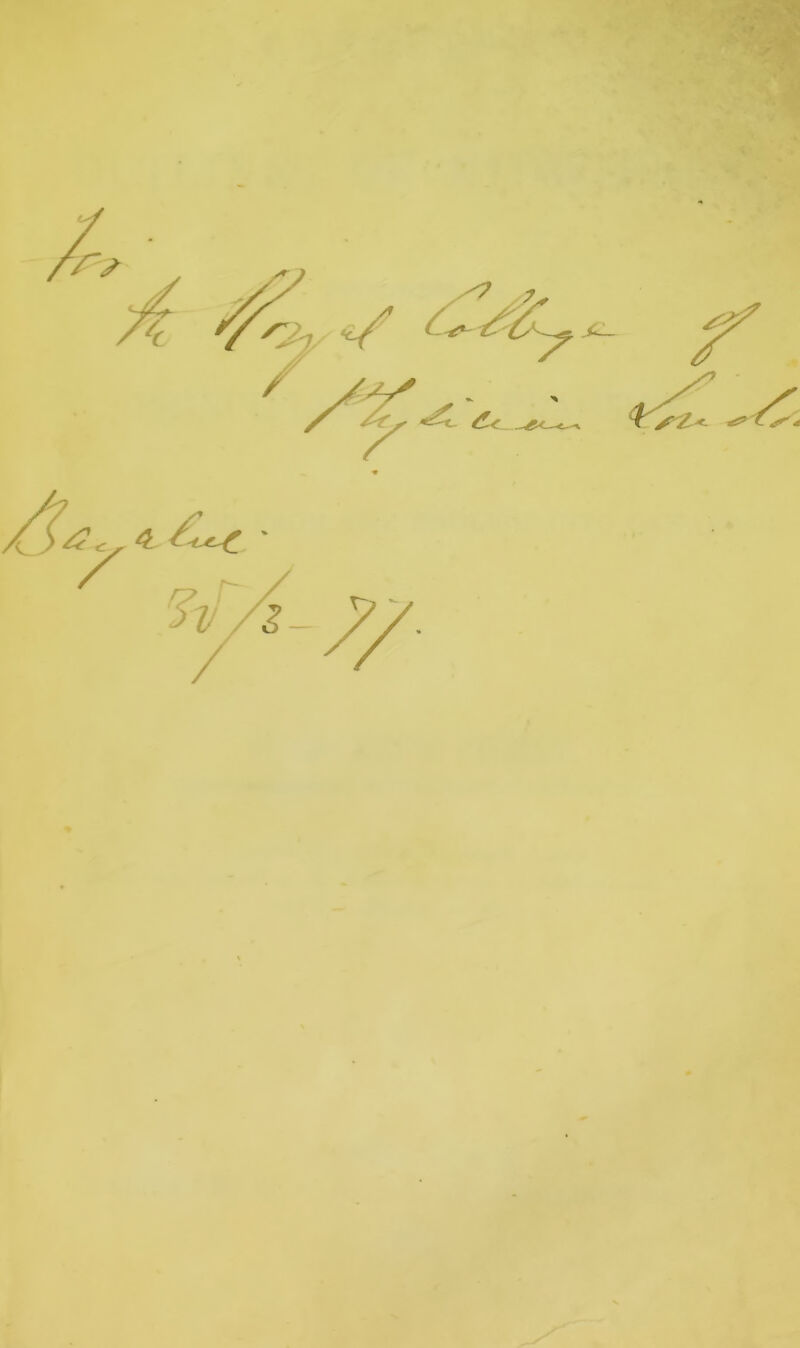 For
the Royal College of
Physicians Lond.
Bangalore
/2-77.